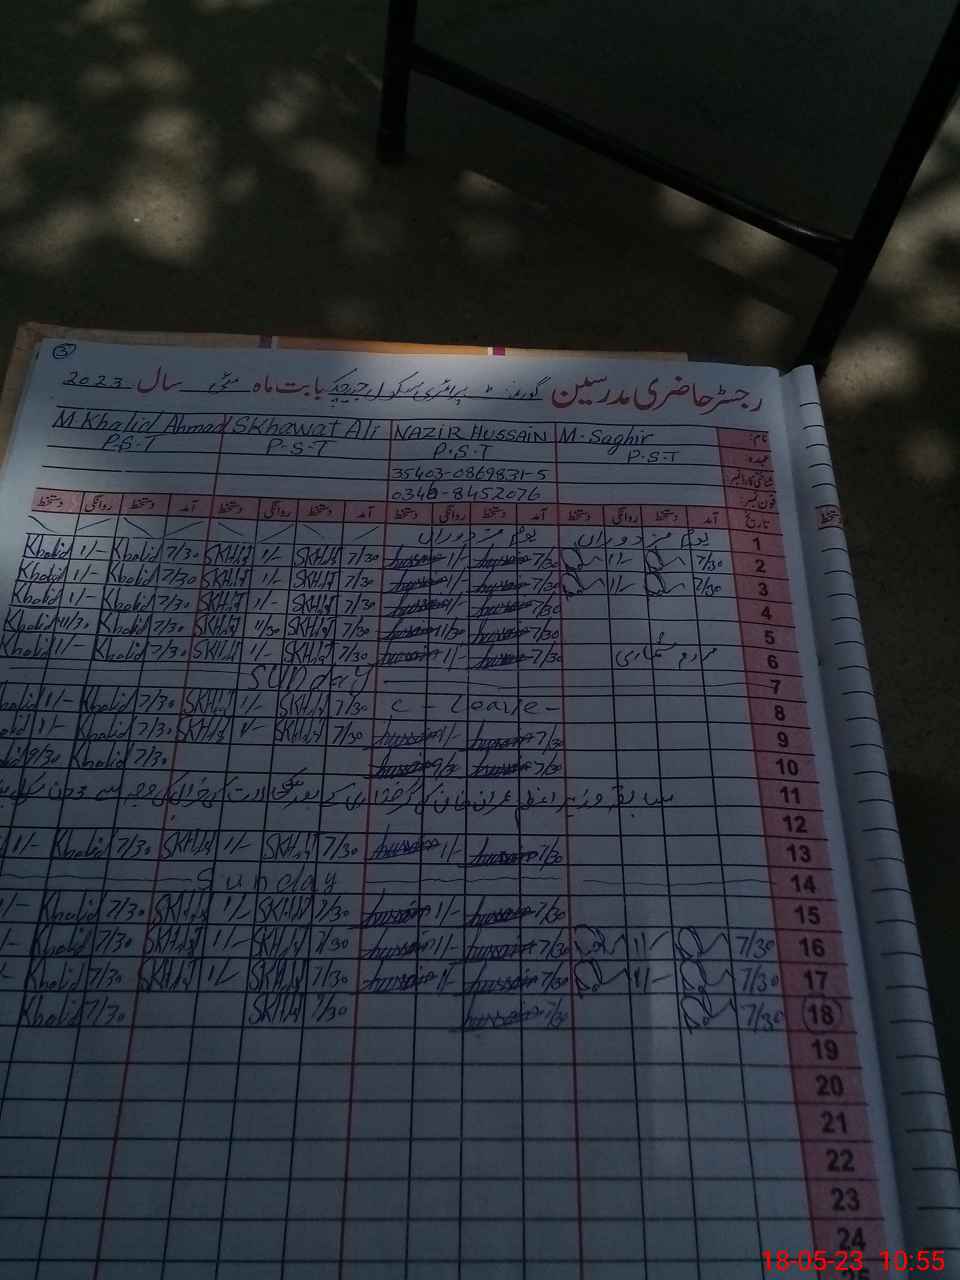 3
رجسٹر حاضری مدرسین گورنمنٹ پرائمری سکول بابت ماہ مئی سال 2023
نام: M. Saghir NAZIR HUSSAIN SKhawat Ali M. Khalid Ahmad
عہدہ: P.S.T P.S.T P.S.T P.S.T
شناختی کارڈ نمبر: 35403-0869831-5
فون نمبر: 0346-8452076
تاریخ آمد دستخط روانگی دستخط آمد دستخط روانگی دستخط آمد دستخط روانگی دستخط آمد دستخط روانگی دستخط
1 یوم مزدوراں یوم مزدوراں
2 7/30 1/- 7/30 hussain 1/- hussain 7/30 SKHLT 1/- SKHLT 7/30 Khalid 1/- Khalid
3 7/30 1/- 7/30 hussain 1/- hussain 7/30 SKHLT 1/- SKHLT 7/30 Khalid 1/- Khalid
4 7/30 hussain 1/- hussain 7/30 SKHLT 1/- SKHLT 7/30 Khalid 1/- Khalid
5 7/30 hussain 11/30 hussain 7/30 SKHLT 11/30 SKHLT 7/30 Khalid 11/30 Khalid
6 مردم شماری 7/30 hussain 1/- hussain 7/30 SKHLT 1/- SKHLT 7/30 Khalid 1/- Khalid
7 SUNday
8 C - Leave - 7/30 SKHLT 1/- SKHLT 7/30 Khalid 1/-
9 7/30 hussain 1/- hussain 7/30 SKHLT 1/- SKHLT 7/30 Khalid 1/-
10 7/30 hussain 9/30 hussain 7/30 Khalid 9/30
11 سابقہ وزیر اعظم عمران خان کی گرفتاری کے بعد ملکی حالات کی خرابی کی وجہ سے
12
13 7/30 hussain 1/- hussain 7/30 SKHLT 1/- SKHLT 7/30 Khalid 1/-
14 Sunday
15 7/30 hussain 1/- hussain 7/30 SKHLT 1/- SKHLT 7/30 Khalid 1/-
16 7/30 1/- 7/30 hussain 1/- hussain 7/30 SKHLT 1/- SKHLT 7/30 Khalid
17 7/30 1/- 7/30 hussain 1/- hussain 7/30 SKHLT 1/- SKHLT 7/30 Khalid
18 7/30 7/30 hussain 7/30 SKHLT 7/30 Khalid
19
20
21
22
23
24
18-05-23 10:55